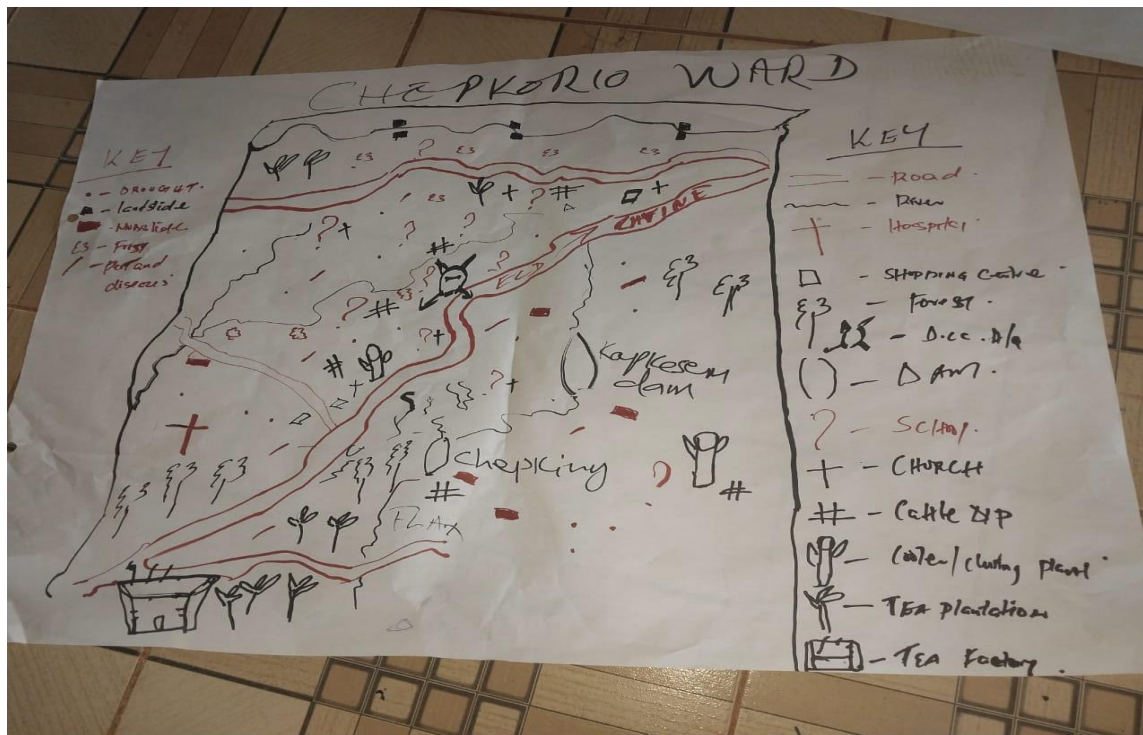 CHEPKORIO WARD
KEY
- DROUGHT.
- landslide
- Mudslide
- Frost
- pest and
diseases
CHTINE
ELD
Kapkesem
dam
chepking
FLAX
KEY
- Road.
- River
- Hospital
- SHOPPING centre
- Forest.
- DAM.
- School.
- CHURCH
- Cattle DIP
- Cooler/chilling plant
- TEA plantation
- TEA Factory.